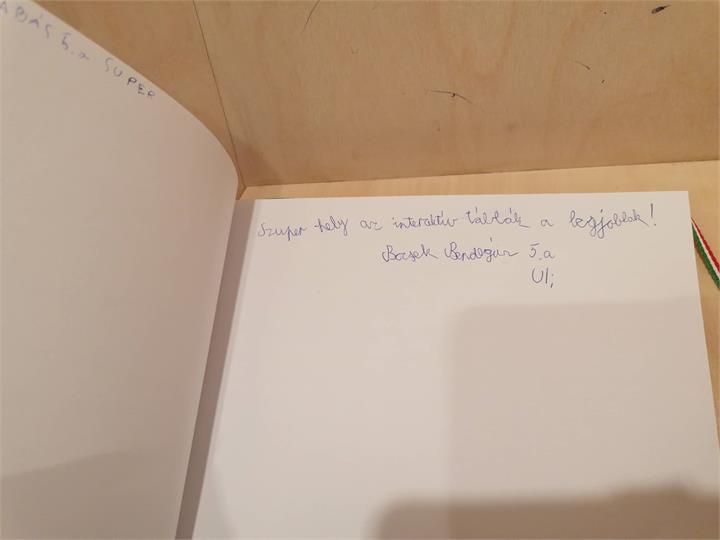 ABÁS 5.a SUPER
Szuper hely az interaktív táblák a legjobbak!
Bocsek Bendegúz 5.a
Ui;